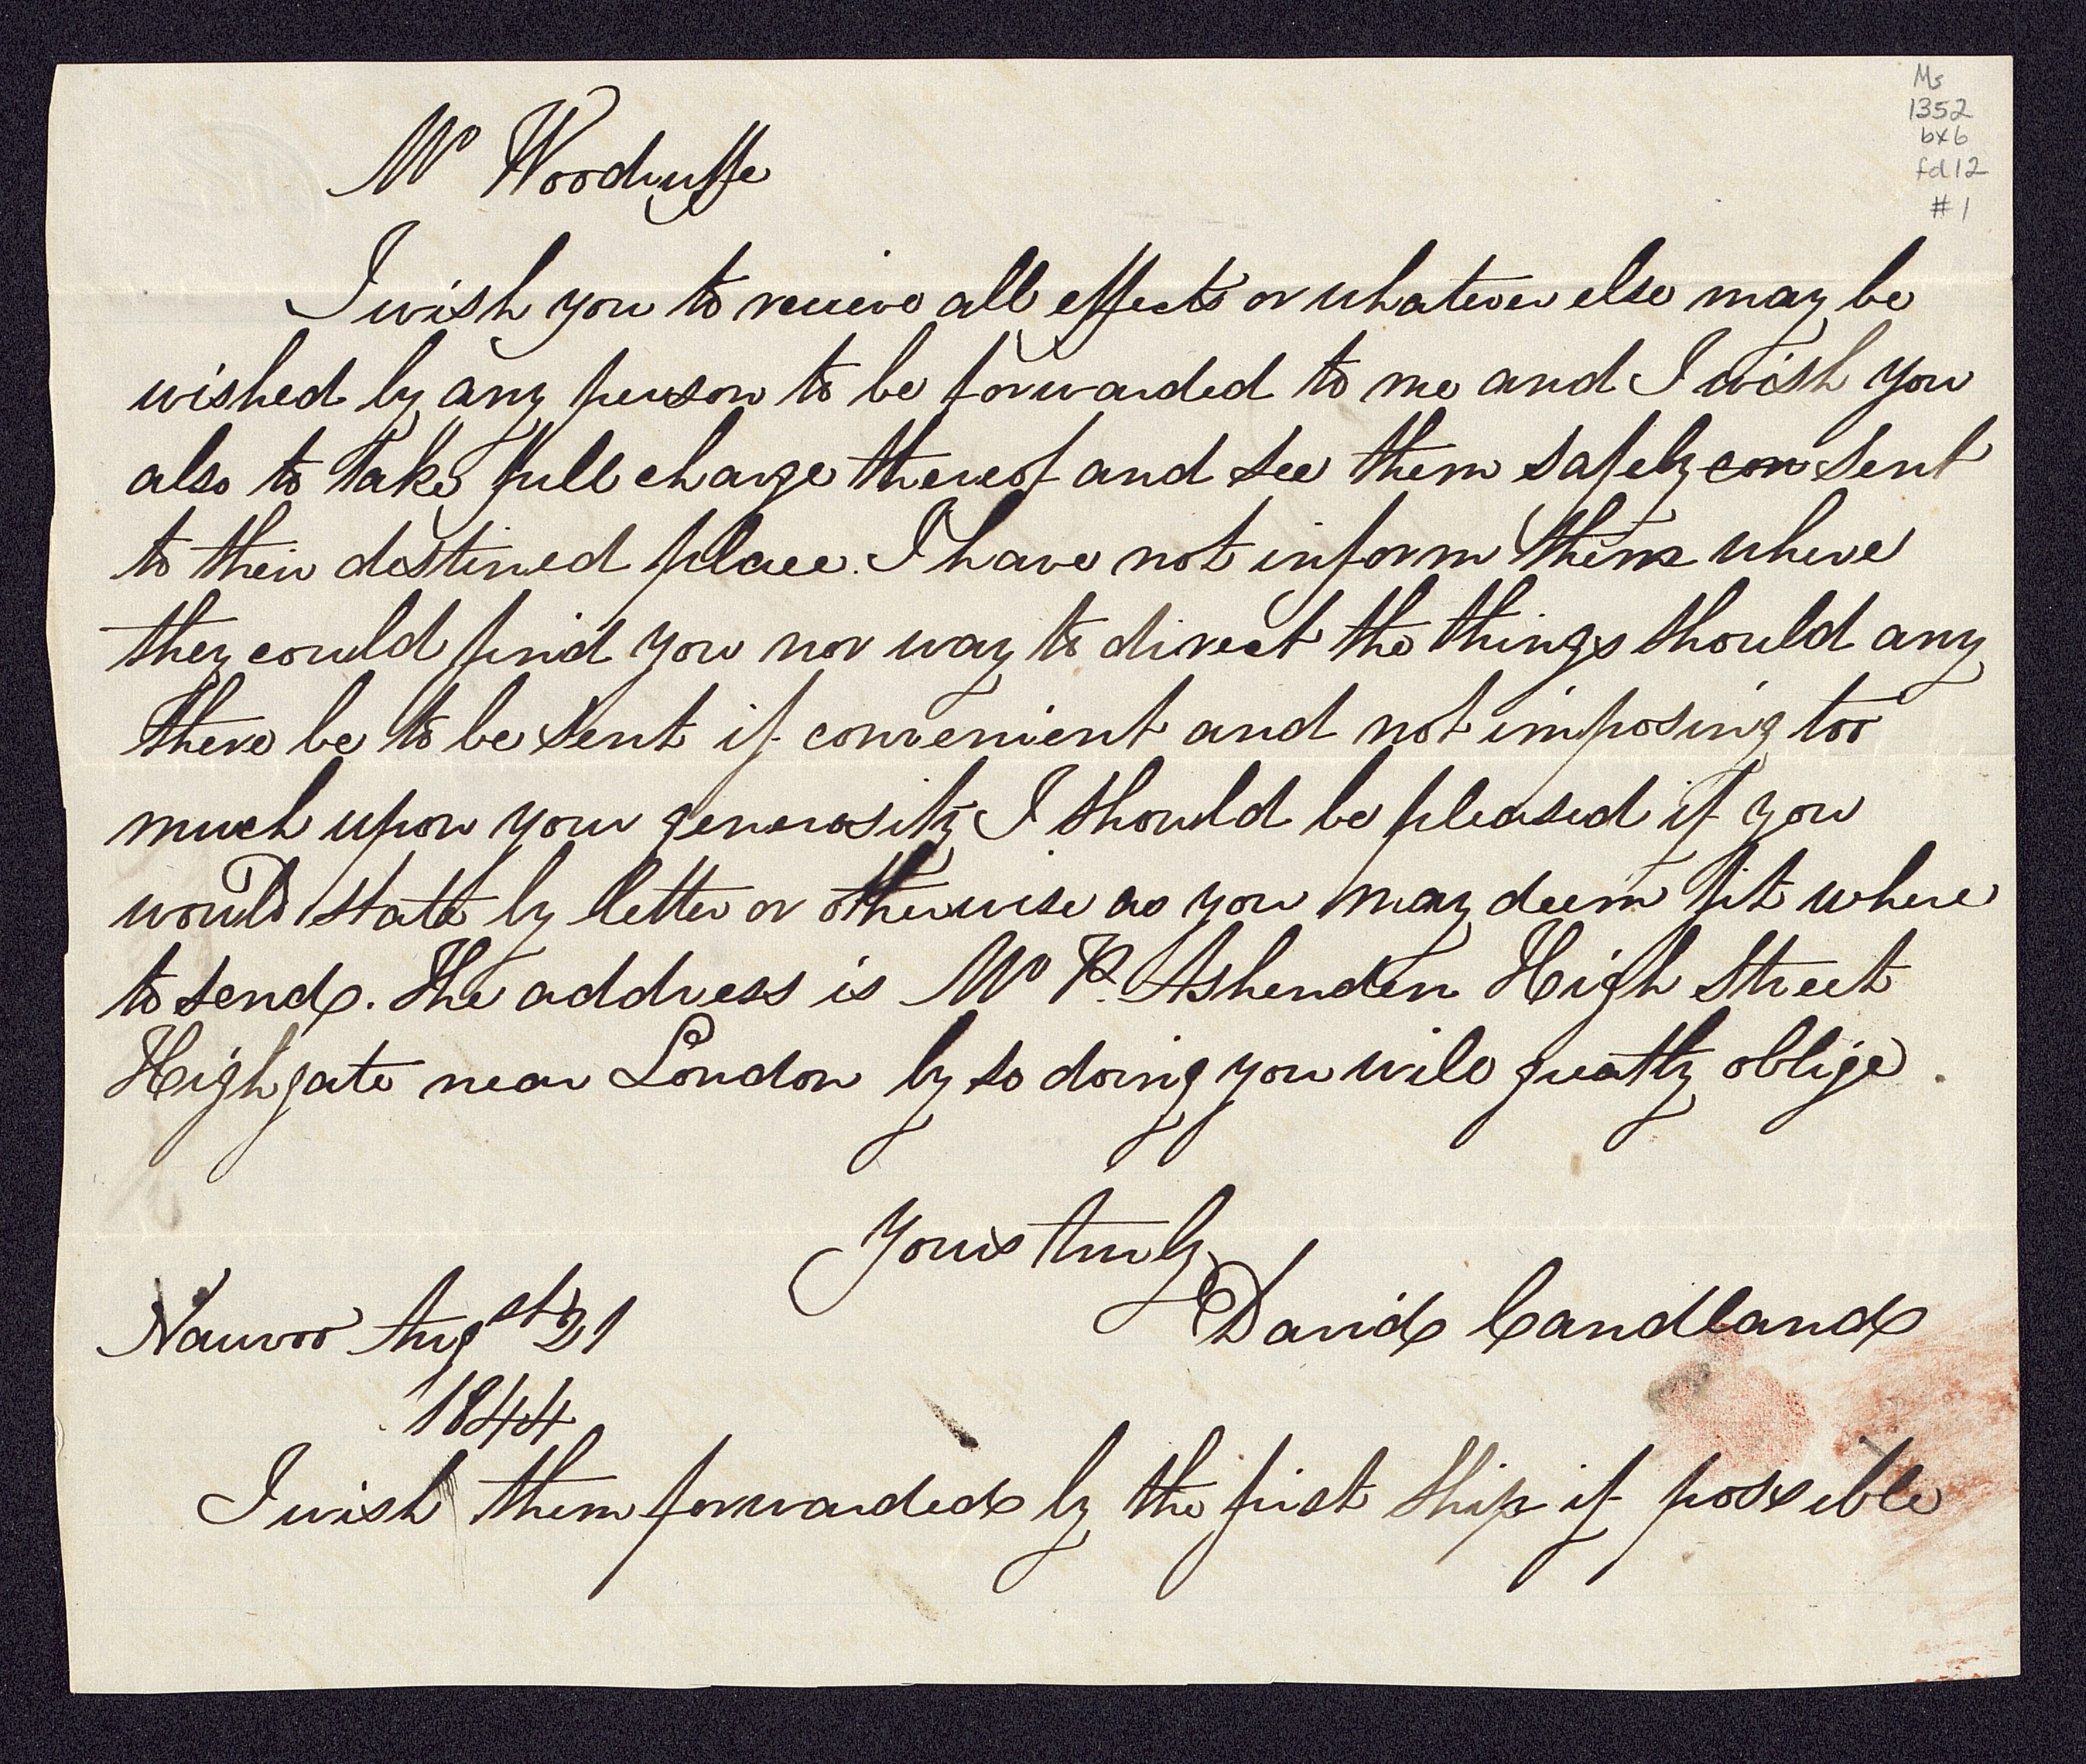 Ms
1352
bx 6
fd 12
#1
Mr Woodruffe
I wish you to recieve all effects or whatever else may be
wished by any person to be forwarded to me and I wish you
also to take full charge thereof and see them safely con sent
to their destined place. I have not inform them where
they could find you nor way to direct the things should any
there be to be sent if convenient and not imposing too
much upon your generosity I should be pleased if you
would state by letter or otherwise as you may deem fit where
to send. The address is Mr R. Ashenden High Street
Highgate near London by so doing you will greatly oblige.
Yours truly
David Candland
Nauvoo Augst 21
1844
I wish them forwarded by the first ship if possible